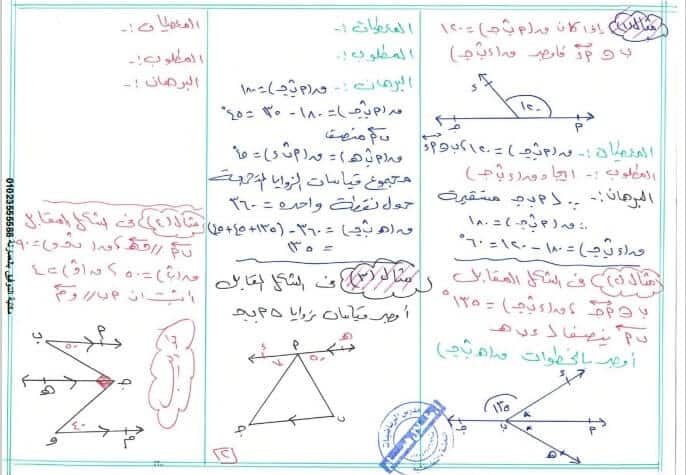 مثال (١) إذا كان ق(م ب̂ جـ) = ١٢٠
ب ∈ م جـ فأوجد ق(د ب̂ جـ)
د
١٢٠
جـ
م
المعطيات :- ق(م ب̂ جـ) = ١٢٠
المطلوب :- إيجاد ق(د ب̂ جـ)
البرهان :- ∵ م ب جـ مستقيمة
∴ ق(م ب̂ جـ) = ١٨٠
ق(د ب̂ جـ) = ١٨٠ - ١٢٠ = ٦٠°
مثال (٢) في الشكل المقابل
ب ∈ م جـ ، ق(د ب̂ جـ) = ١٣٥°
ب م ينصف د ب هـ
أوجد بالخطوات ق(هـ ب̂ جـ)
د
١٣٥
جـ
ب
م
هـ
المعطيات :-
المطلوب :-
البرهان :- ق(م ب̂ جـ) = ١٨٠
ق(م ب̂ جـ) = ١٨٠ - ١٣٥ = ٤٥°
ب م منصف
ق(م ب̂ هـ) = ق(م ب̂ د) = ٤٥
مجموع قياسات الزوايا المتجمعة
حول نقطة واحدة = ٣٦٠
ق(هـ ب̂ جـ) = ٣٦٠ - (١٣٥ + ٤٥ + ٤٥)
= ١٣٥
مثال (٣) في الشكل المقابل
أوجد قياسات زوايا △ م ب جـ
د
م
هـ
٧٠
٥٠
جـ
ب
[٢]
المعطيات :-
المطلوب :-
البرهان :-
مثال (٤) في الشكل المقابل
ب م // جـ هـ ، ق(ب جـ̂ و) = ٩٠
ق(ب̂) = ٥٠ ، ق(و̂) = ٤٠
أثبت أن ب م // و م
ب
م
٥٠
هـ
جـ
٤٠
و
م